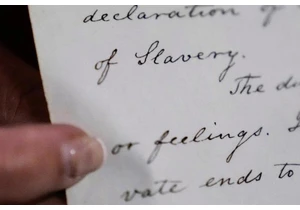 declaration of
of Slavery.
The du
or feelings. I
vate ends to